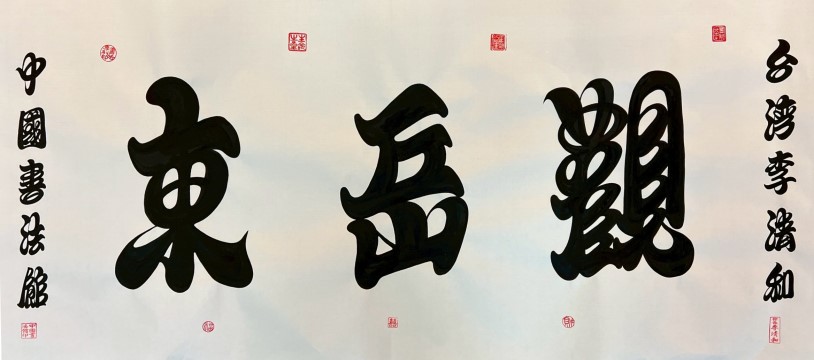 中國書法館
東岳觀
台湾李清和